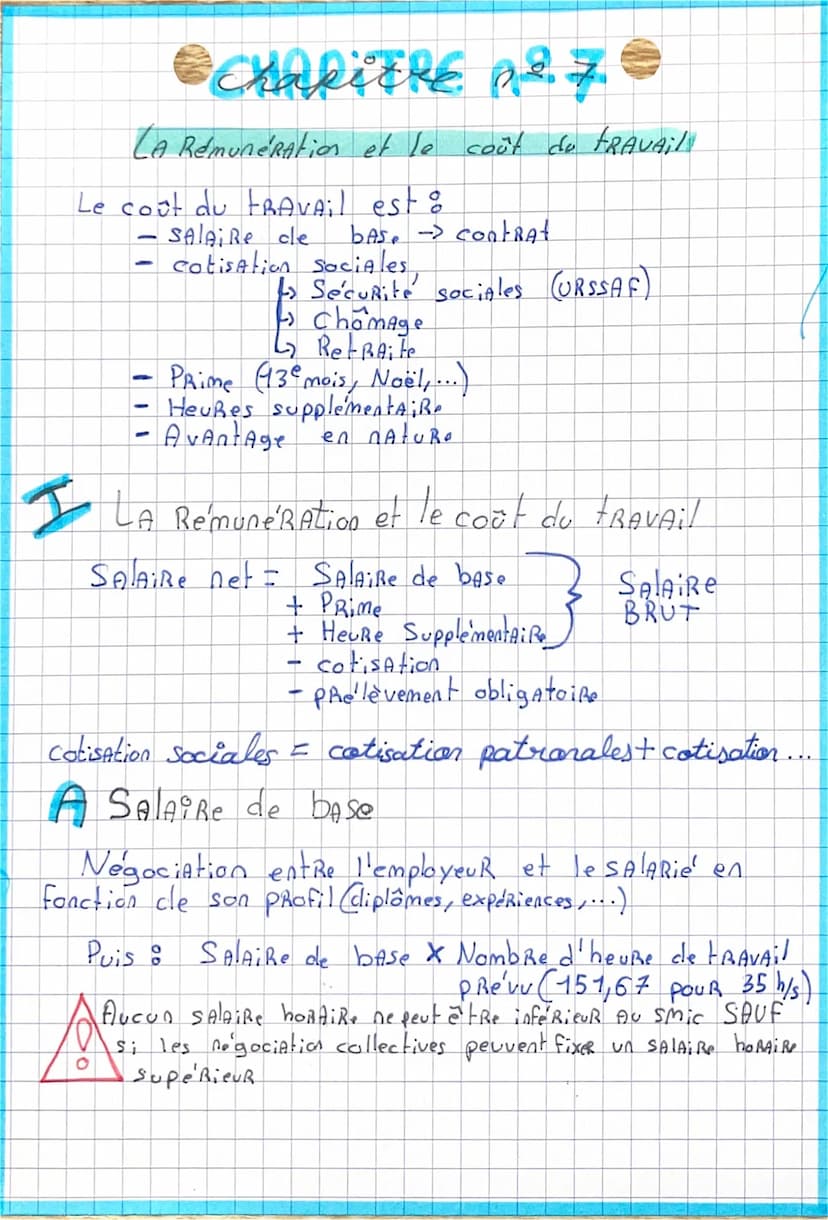 Chapitre n°7
La Rémunération et le coût du travail
Le coût du travail est :
- salaire de base → contrat
- cotisation sociales
↳ Sécurité sociales (URSSAF)
↳ Chômage
↳ Retraite
- Prime (13e mois, Noël,...)
- Heures supplémentaire
- Avantage en nature
I La Rémunération et le coût du travail
Salaire net = Salaire de base
+ Prime
+ Heure Supplémentaire
} Salaire BRUT
- cotisation
- prélèvement obligatoire
cotisation sociales = cotisation patronales + cotisation...
A Salaire de base
Négociation entre l'employeur et le salarié en
fonction de son profil (diplômes, expériences,...)
Puis : Salaire de base x Nombre d'heure de travail
prévu (151,67 pour 35 h/s)
! Aucun salaire horaire ne peut être inférieur au smic SAUF
si les négociation collectives peuvent fixer un salaire horaire
supérieur